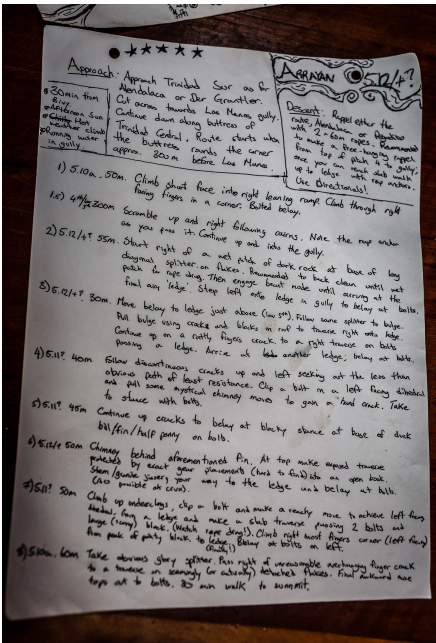 Approach: Approach Trinidad Sur as for
Alendalaca or Der Grantler.
Cut across towards Las Manos gully.
Continue down along buttress of
Trinidad Central. Route starts when
the buttress rounds the corner
approx. 300m before Las Manos
30min from
Bivy
Afternoon Sun
Hot
weather climb
Running water
in gully
ARRAYAN 5.12/+?
Descent: Rappel either the
route, Alendalaca or
with 2 60m ropes. Recommended
to make a free-hanging rappel
from top of pitch 2 to gully,
once you reach slab walk
up to ledge with rap anchors.
Use Directionals!
1) 5.10a. 50m. Climb short face into right leaning ramp. Climb through right
facing fingers in a corner. Bolted belay.
1.5) 4th/ 200m Scramble up and right following cairns. Note the rap anchor
as you pass it. Continue up and into the gully.
2) 5.12/+? 55m. Start right of a wet patch of dark rock at base of long
diagonal splitter on flakes. Recommended to back clean until wet
patch for rope drag. Then engage beast mode until arriving at the
final aim 'ledge'. Step left onto ledge in gully to belay at bolts.
3) 5.12/+? 30m. Move belay to ledge just above (low 5th). Follow same splitter to bulge.
Pull bulge using cracks and blocks in roof to traverse right onto ledge.
Continue up on a ratty fingers crack to a right traverse on bolts
passing a ledge. Arrive at another ledge; belay at bolts.
4) 5.11? 40m Follow discontinuous cracks up and left seeking out the less than
obvious path of least resistance. Clip a bolt in a left facing dihedral
and pull some mystical chimney moves to gain a hand crack. Take
to stance with bolts.
5) 5.11? 45m Continue up cracks to belay at blocky stance at base of duck
bill/fin/half penny on bolts.
6) 5.12/+ 50m Chimney behind aforementioned fin. At top make exposed traverse
protected by exact gear placements (hard to find) into an open book.
Stem/gentle savers your way to the ledge and belay at bolts.
(A0 possible at crux).
7) 5.11? 50m Climb up underclings, clip a bolt and make a reachy move to achieve left facing
dihedral. Gain a ledge and make a slab traverse passing 2 bolts and
large (roomy) block. (Watch rope drag!). Climb right most fingers corner (left facing)
from back of party block to ledge. Belay at bolts on left.
(finally!)
8) 5.10a. 60m Take obvious glory splitter. Pass right of unreasonable overhanging finger crack
to a traverse on seemingly (or actually) detached flakes. Final awkward move
tops out to bolts. 20 min walk to summit.